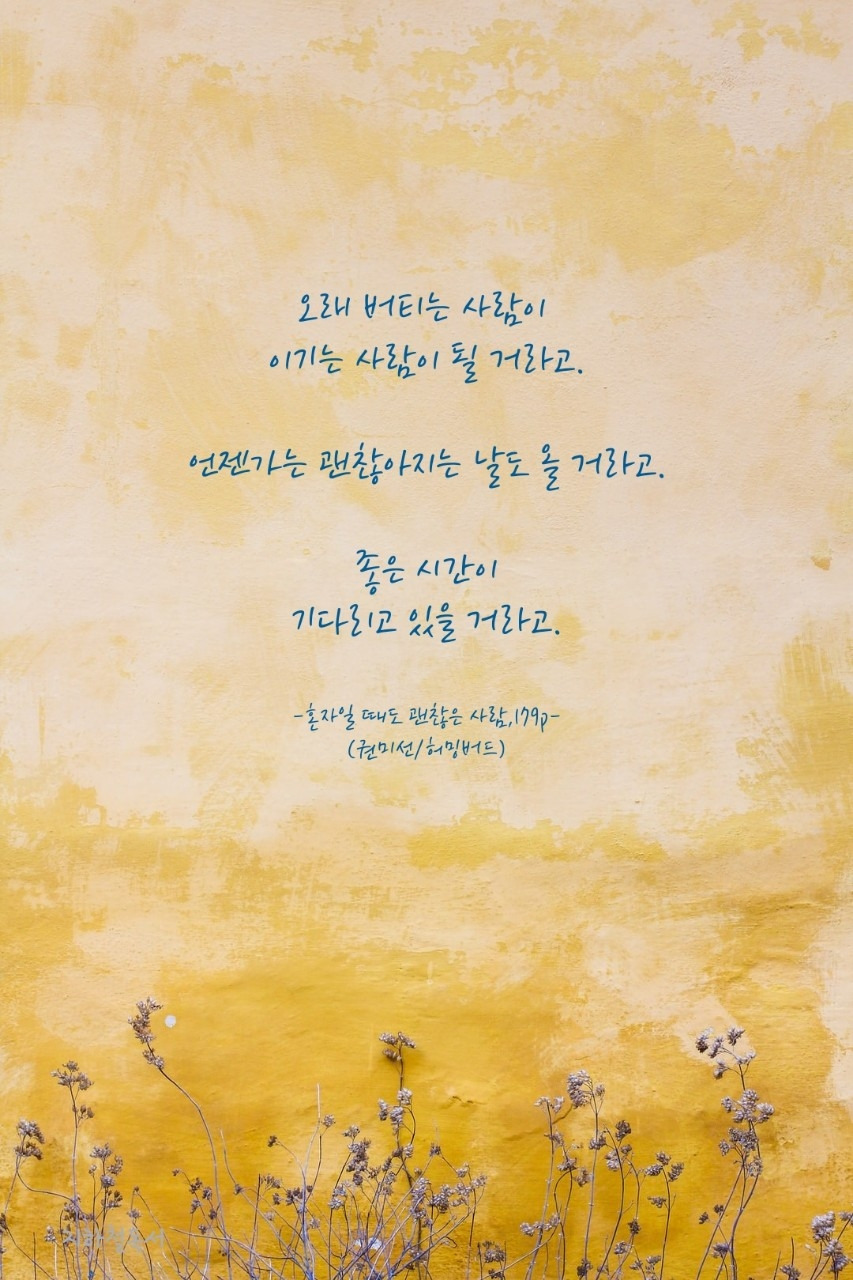 오래 버티는 사람이
이기는 사람이 될 거라고.
언젠가는 괜찮아지는 날도 올 거라고.
좋은 시간이
기다리고 있을 거라고.
-혼자일 때도 괜찮은 사람,179p-
(권미선/허밍버드)